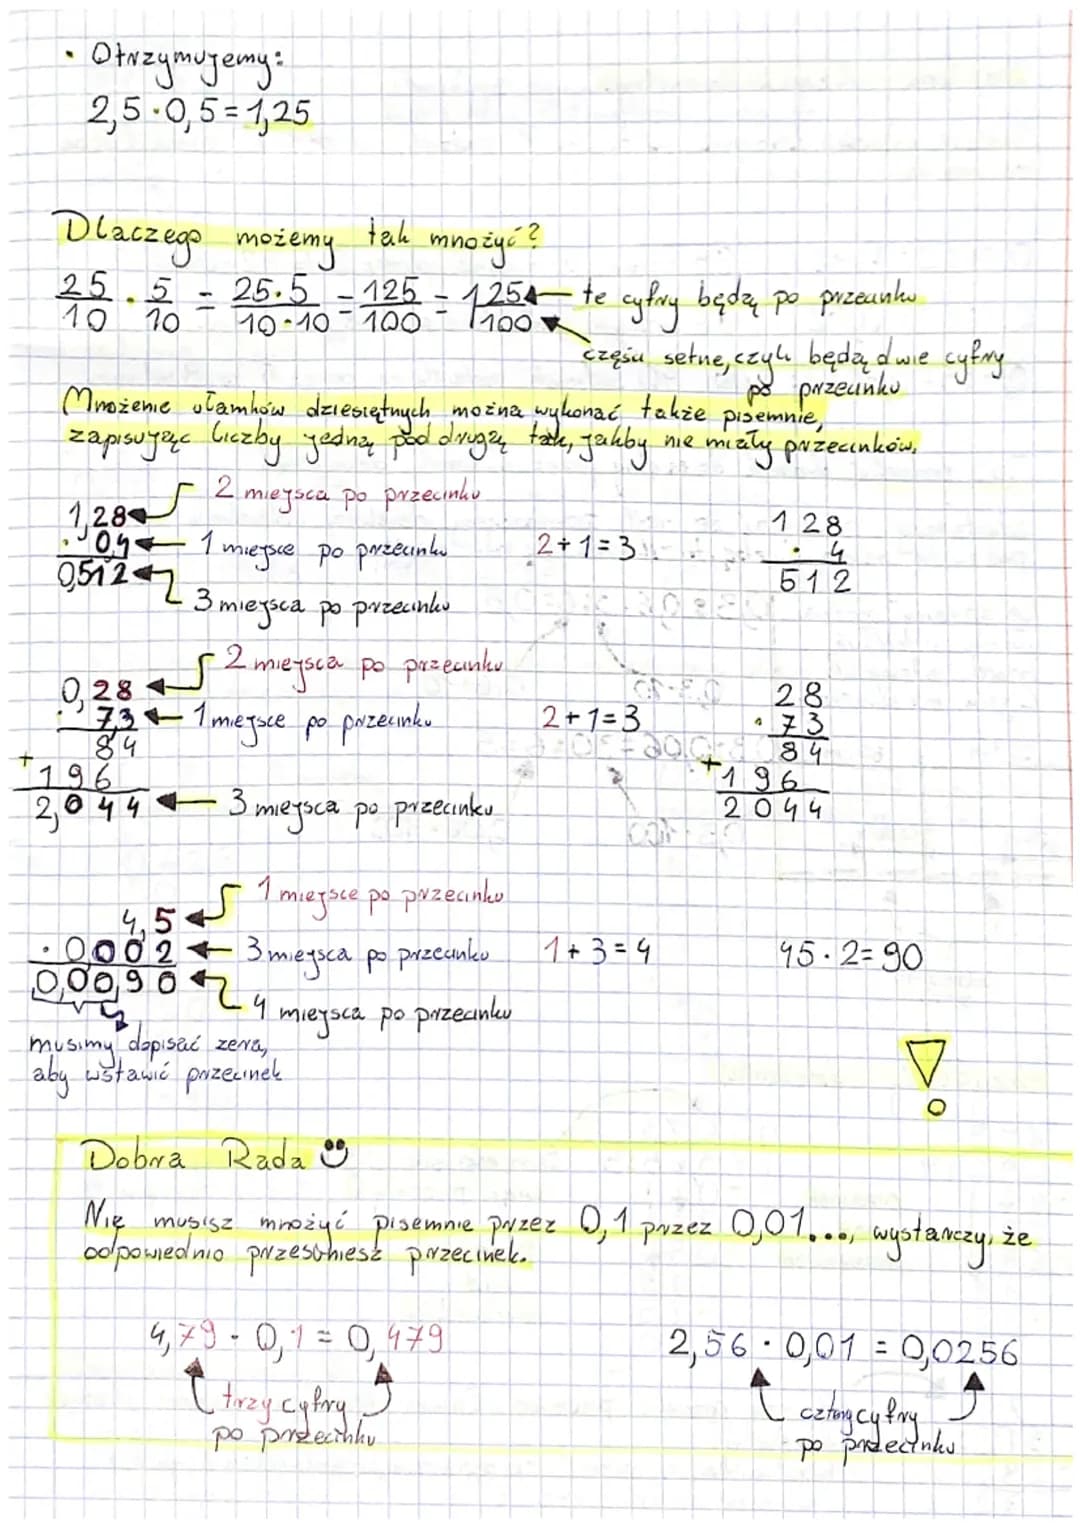 • Otrzymujemy:
2,5 · 0,5 = 1,25
Dlaczego możemy tak mnożyć?
25/10 · 5/10 = 25·5/10·10 = 125/100 = 1 25/100 ← te cyfry będą po przecinku
części setne, czyli będą dwie cyfry
po przecinku
Mnożenie ułamków dziesiętnych można wykonać także pisemnie,
zapisując liczby jedną pod drugą tak, jakby nie miały przecinków.
2 miejsca po przecinku
1,28 128
· 0,4 ← 1 miejsce po przecinku 2+1=3 · 4
0,512 512
3 miejsca po przecinku
2 miejsca po przecinku
0,28 28
· 7,3 ← 1 miejsce po przecinku 2+1=3 · 73
84 84
+ 196 + 196
2,044 ← 3 miejsca po przecinku 2044
1 miejsce po przecinku
4,5
· 0,002 ← 3 miejsca po przecinku 1+3=4 45·2=90
0,0090
4 miejsca po przecinku
musimy dopisać zera,
aby wstawić przecinek
!
Dobra Rada
Nie musisz mnożyć pisemnie przez 0,1 przez 0,01..., wystarczy, że
odpowiednio przesuniesz przecinek.
4,79 · 0,1 = 0,479 2,56 · 0,01 = 0,0256
trzy cyfry cztery cyfry
po przecinku po przecinku